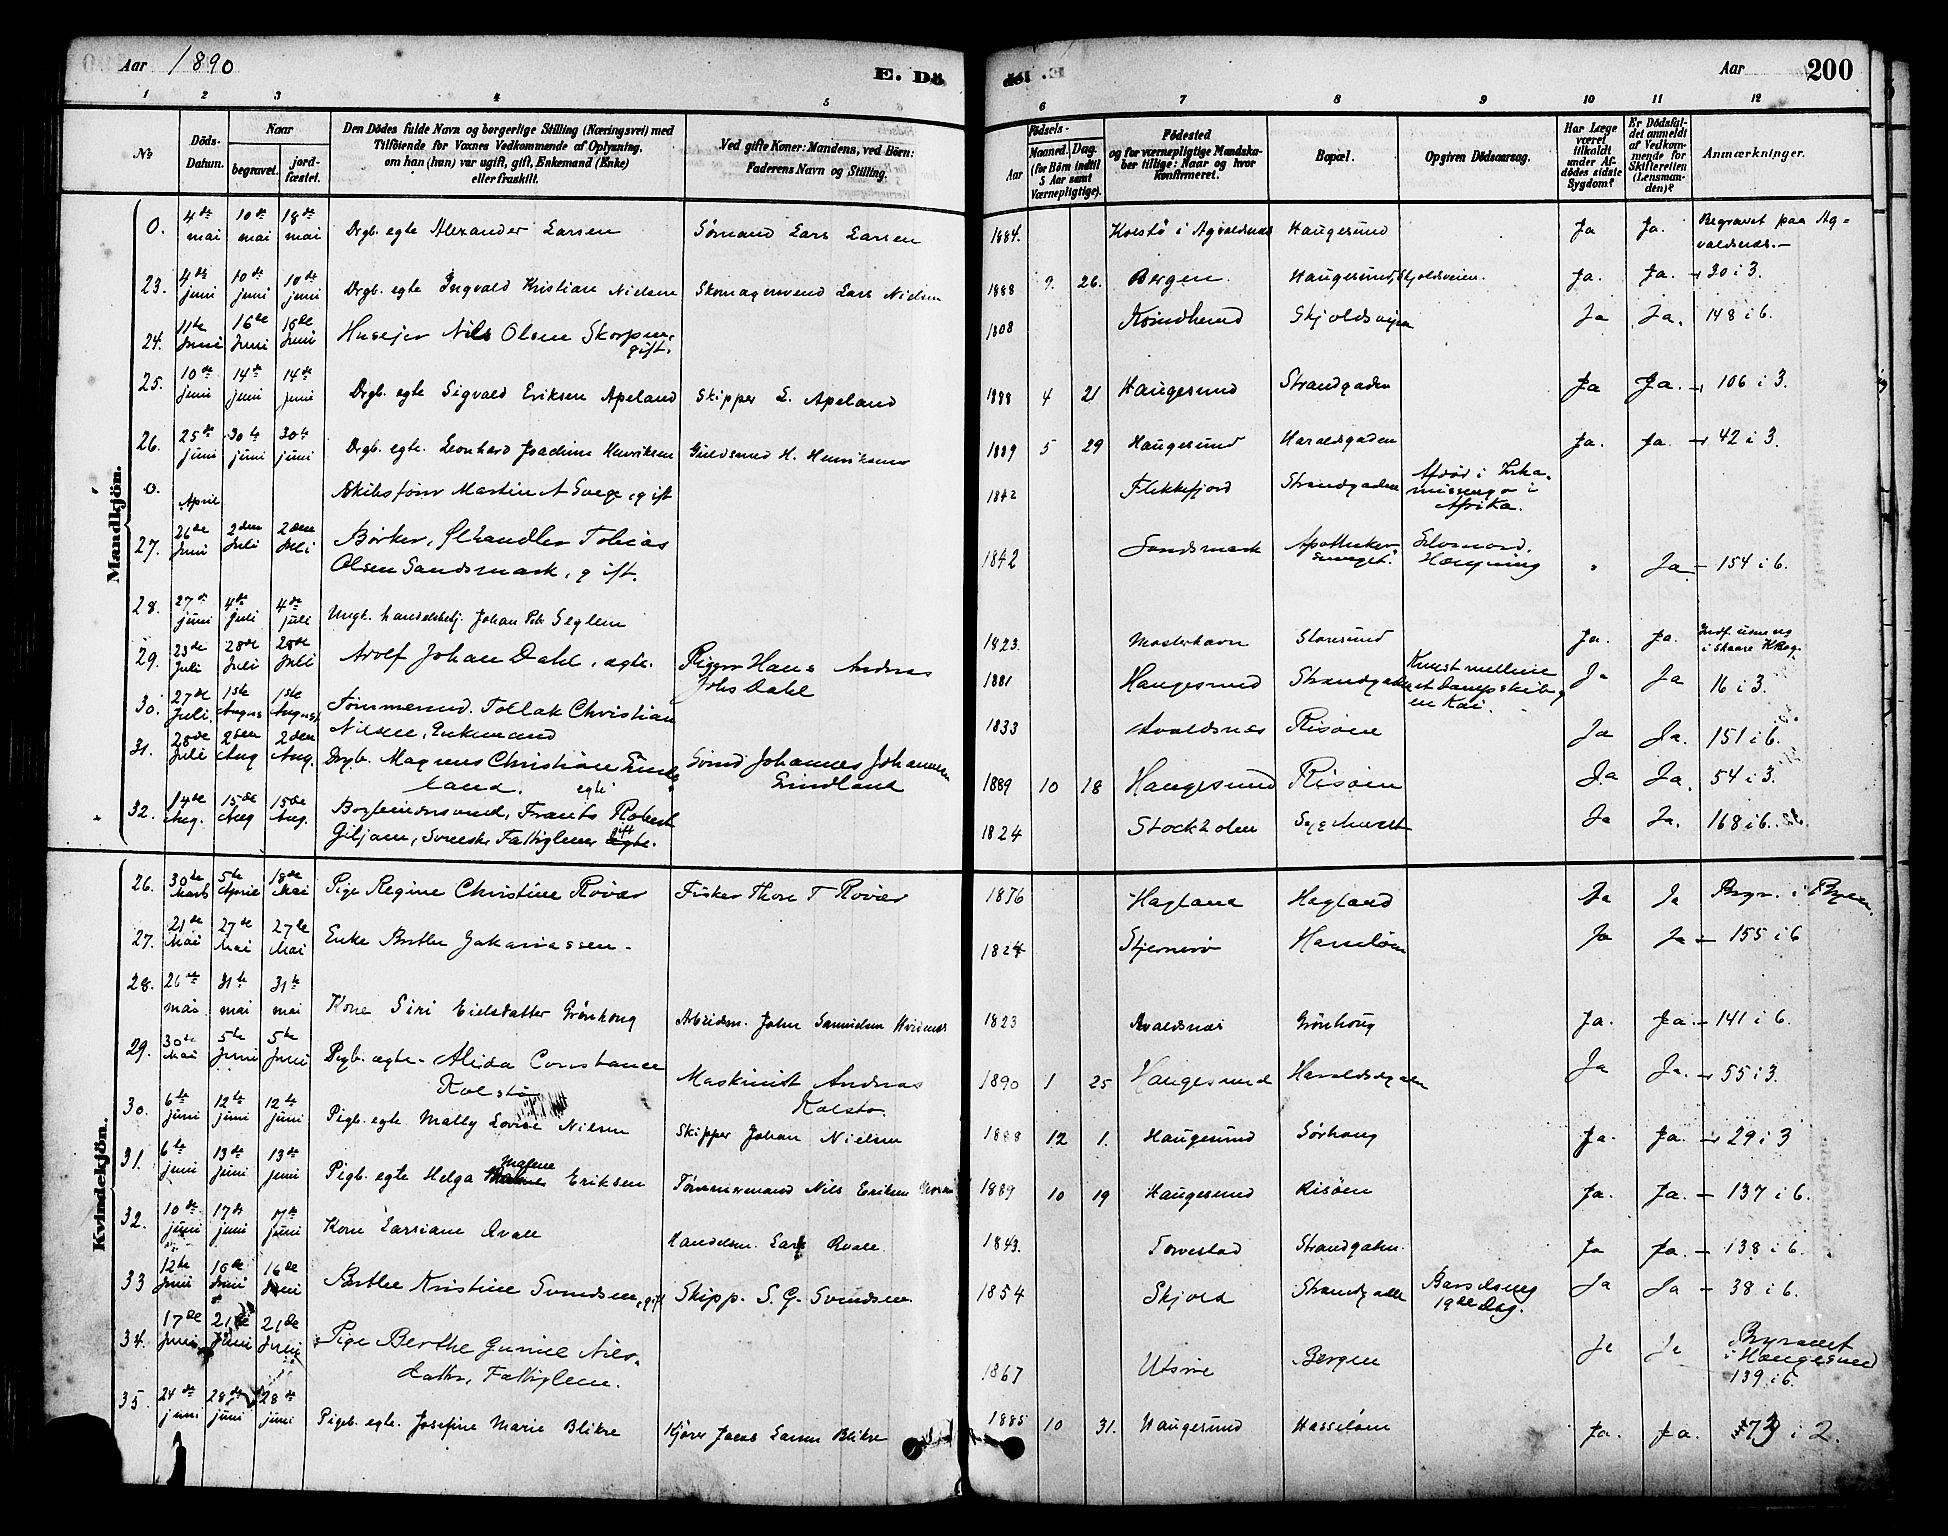 Aar 1890
E. Dö
döl
Aar
200
1 2 3 4 5 6 7 8 9 10 11 12
No
Döds-Datum.
Naar
begravet.
jord-fæstet.
Den Dödes fulde Navn og borgerlige Stilling (Næringsvei) med
Tilföiende for Voxnes Vedkommende af Oplysning,
om han (hun) var ugift, gift, Enkemand (Enke)
eller fraskilt.
Ved gifte Koner: Mandens, ved Börn:
Faderens Navn og Stilling.
Födsels-
Aar
Maaned. Dag.
(for Börn indtil
5 Aar samt
Værnepligtige).
Födested
og for værnepligtige Mandska-
ber tillige: Naar og hvor
konfirmeret.
Bopæl.
Opgiven Dödsaarsag.
Har Læge
været
tilkaldt
under Af-
dödes sidste
Sygdom?
Er Dödsfal-
det anmeldt
af Vedkom-
mende for
Skifteretten
(Lensman-
den)?
Anmærkninger.
Mandkjön.
0. 4de mai 10de mai 18de mai Drgb. egte Alexander Larsen Sømand Lars Larsen 1884. Kolstø i Agvaldsnæs Haugesund Ja Ja. Begravet paa Ag-
valdsnæs.-
23. 4de juni 10de juni 10de juni Drgb. egte Ingvald Kristian Nielsen Skomagersvend Lars Nielsen 1888 9. 26. Bergen. Haugesund, Skjoldsveien. Ja. Ja. 30 i 3.
24. 11te Juni 16de Juni 16de Juni Husejer Nils Olsen Skorpen,
gift. 1808 Kvindherred Skjoldsvejen Ja Ja. 148 i 6.
25. 10de juni 14de juni 14de juni Drgb. egte Sigvald Eriksen Apeland Skipper E. Apeland 1888 4 21 Haugesund Strandgaden Ja Ja. 106 i 3.
26. 25de juni 30te juni 30te juni Drgb. egte. Leonhard Joachim Henriksen Guldsmed H. Henriksen 1889 5 29 Haugesund Haraldsgaden Ja. Ja. 42 i 3.
0. April Skibsfører Martin A Svege, gift 1842 Flekkefjord Strandgaden Afrika.
27. 26de Juni 2den Juli 2den Juli Børker, Tobias
Olsen Sandsmark, gift. 1842 Sandsmark Selvmord,
Hængning Ja 154 i 6.
28. 27de juni 4de juli 4de juli Ungk. handelsbetj. Johan Seglem 1823. Mosterhavn Storesund Ja. Ja.
29. 23de Juli 28de Juli 28de Juli Adolf Johan Dahl, egte. Rigger Hans Andreas
Johs Dahl 1881 Haugesund Strandgaden Knust mellem
et Dampskib og
en Kai. Ja Ja 16 i 3.
30. 27de Juli 1ste August 1ste August Tømmermd. Tollak Christian
Nilsen, Enkemand 1833 Avaldsnæs Risøen Ja Ja. 151 i 6.
31. 28de Juli 2den Aug 2den Aug. Drgb. Magnus Christian Lind-
land. egte Svend Johannes Johannesen
Lindland 1889 10 18 Haugesund Risøen Ja Ja. 54 i 3.
32. 14de Aug. 15de Aug 15de Aug. Frants Robert
Giljam, Svensk Fattiglem gift 1824 Stockholm Ja Ja. 168 i 6.
Kvindekjön.
26. 30te Marts 5te April 18de Mai Pige Regine Christine Røvær Fisker Thore T Røvær 1876 Hagland Hagland Ja Ja Begr. i Byen.
27. 21de Mai 27de Mai 27de Mai Enke Berthe Zakariassen - 1824 Stjernerø Hasseløen Ja Ja 155 i 6
28. 26de mai 31te mai 31te mai Kone Siri Eielsdatter Grønhoug Arbeidsm. John Samuelsen Hvidnæs 1823 Avaldsnæs Grønhoug Ja. Ja. 141 i 6.
29. 30te Mai 5te Juni 5te Juni Pigb. ægte. Alida Constance
Kolstø Maskinist Andreas
Kolstø. 1890 1 25 Haugesund Haraldsgaden Ja Ja. 55 i 3.
30. 6te juni 12te juni 12te juni Pigb. egte Mally Lovise Nilsen Skipper Johan Nielsen 1888 12 1. Haugesund Sørhaug Ja. Ja. 29 i 3
31. 6te juni 13de juni 13de juni Pigb. egte Helga Malene Eriksen Tømmermand Nils Eriksen 1889 10 19 Haugesund Risøen Ja. Ja. 137 i 6.
32. 10de juni 17de juni 17de juni Kone Larsiane Qvale Handelsm. Lars Qvale. 1843. Torvestad Strandgaten. Ja Ja. 138 i 6.
33 12te Juni 16de Juni 16de Juni Berthe Kristine Svendsen, gift Skipp. S. G. Svendsen 1854 Skjold Strandgaden Barselseng
19de Dag. Ja Ja 38 i 6.
34. 17de Juni 21de Juni 21de Juni Pige Berthe Gurine Nils-
datter, Fattiglem. 1867 Utsire Bergen Ja Ja Begravet
i Haugesund
139 i 6.
35. 24de juni 28de juni 28de juni Pigeb. egte. Josefine Marie Blikre Kjører Jacob Larsen Blikre 1885 10 31. Haugesund Hasseløen Ja. Ja. 73 i 2.